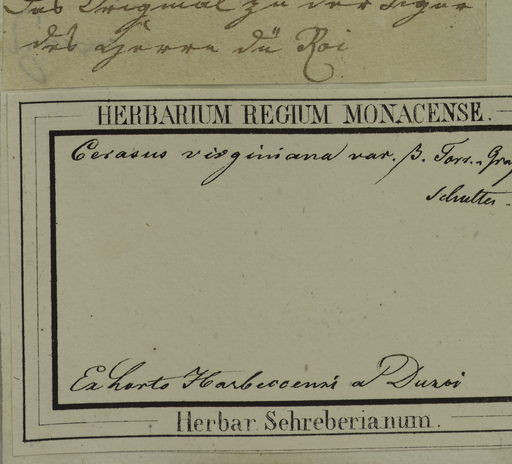 Das Original zu der Figur
des Herrn du Roi
HERBARIUM REGIUM MONACENSE.
Cerasus virginiana var. β. Torr. Gra
Ex horto Harbeccensi a Duroi
Herbar. Schreberianum.